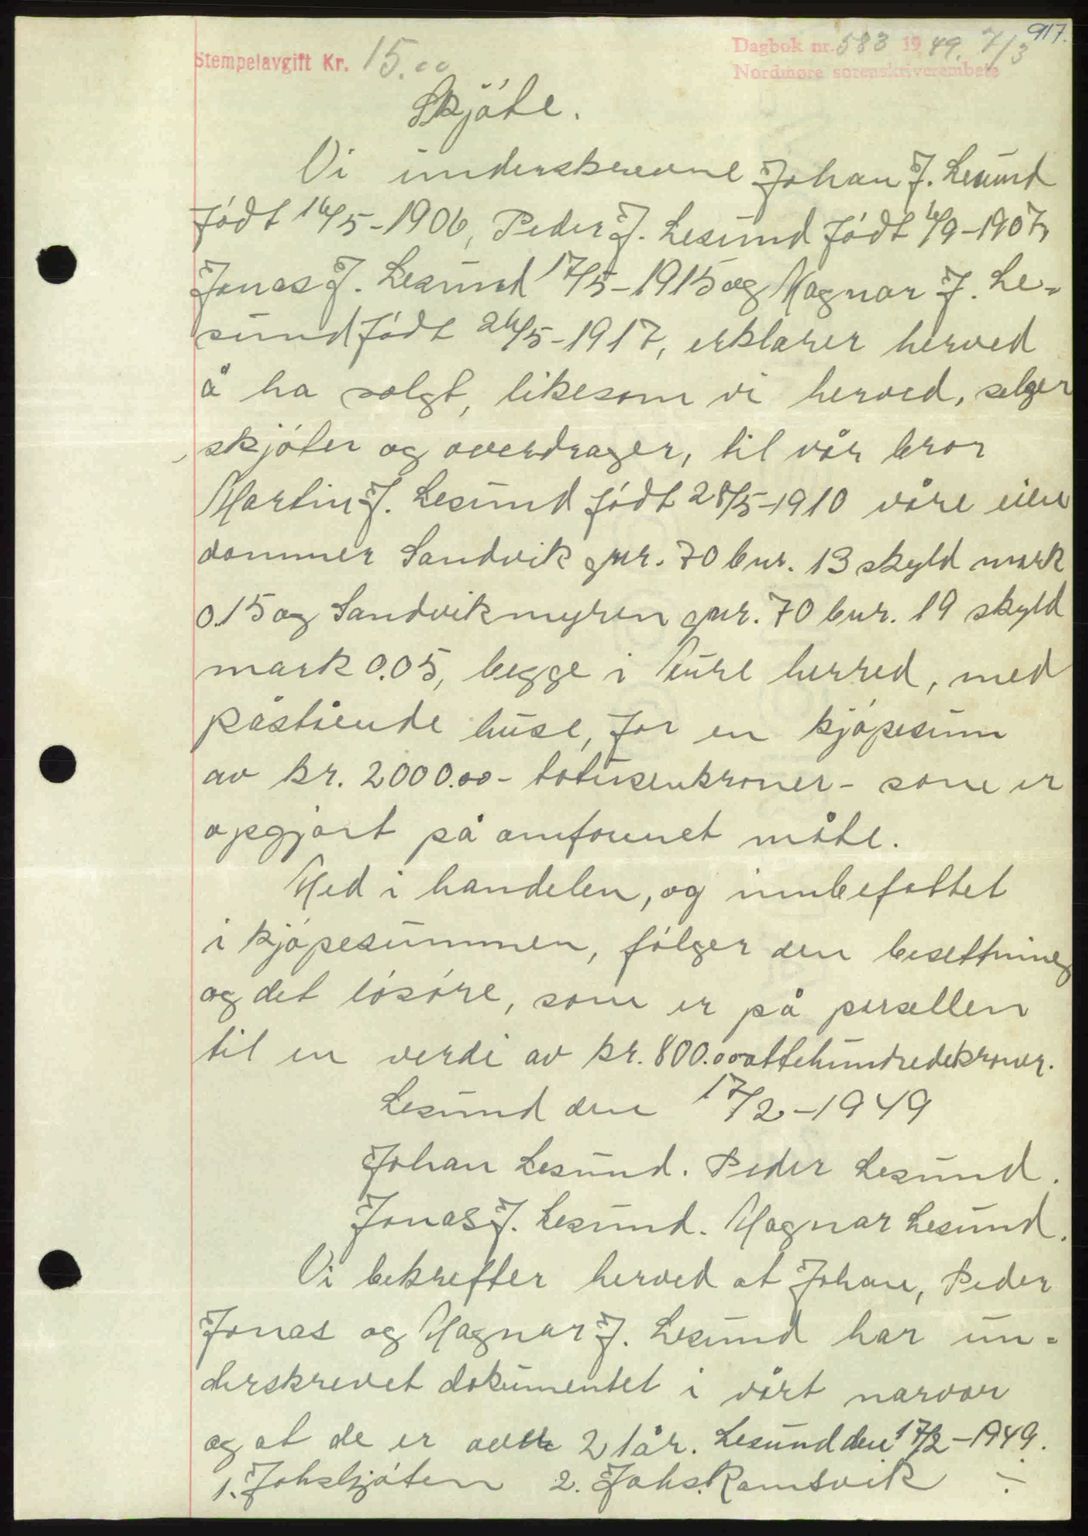 917.
Stempelavgift Kr. 15.00
Dagbok nr. 583 19 49. 7/3
Nordmøre sorenskriverembete
Skjøte.
Vi underskrevne Johan J. Lesund
født 16/5-1906, Peder J. Lesund født 6/9-1907,
Jonas J. Lesund 17/5-1915 og Magnar J. Le-
sund født 24/5-1917, erklærer herved
å ha solgt, likesom vi herved, selger
skjøter og overdrager, til vår bror
Martin J. Lesund født 28/5-1910 våre eien
dommer Sandvik gnr. 70 bnr. 13 skyld mark
0.15 og Sandvikmyren gnr. 70 bnr. 19 skyld
mark 0.05, begge i Aure herred, med
påstående huse, for en kjøpesum
av kr. 2000.00- totusenkroner- som er
opgjort på omforenet måte.
Med i handelen, og innbefattet
i kjøpesummen, følger den besettning
og det løsøre, som er på parsellen
til en verdi av kr. 800.00 åttehundredekroner.
Lesund den 17/2-1949
Johan Lesund. Peder Lesund.
Jonas J. Lesund. Magnar Lesund.
Vi bekrefter herved at Johan, Peder
Jonas og Magnar J. Lesund har un-
derskrevet dokumentet i vårt nærvær
og at de er over 21 år. Lesund den 17/2-1949.
1. 2. Johs. Ramsvik